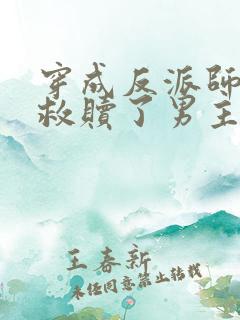 穿成反派師
救贖了男主
王春新
未经同意禁止转载